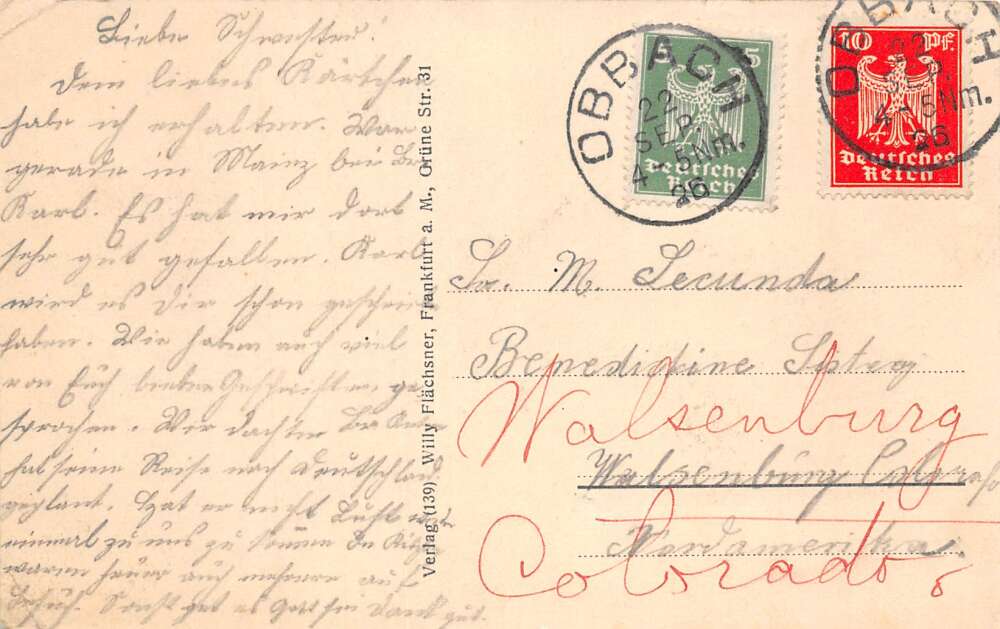 Liebe Schwester!
Dem liebes Kärtchen
habe ich erhalten. War
gerade in Mainz bei Br.
Karl. Es hat mir dort
sehr gut gefallen. Karl
wird es Dir schon geschrieb
haben. Wir haben auch viel
von Euch lieben Geschwistern ge
sprochen. Wir dachten Br.
hat seine Reise nach Deutschland
geplant. Hat er nicht Lust
einmal zu uns zu kommen
waren heuer auch mehrere auf
Besuch. Sonst get es Gott sei Dank gut.
Verlag (139) Willy Flächsner, Frankfurt a. M., Grüne Str. 31
5
Deutsches
Reich
OBBACH
22
SEP.
4-5Nm.
26
10 Pf
Deutsches
Reich
OBBACH
22
SEP.
4-5Nm.
26
Sr. M. Secunda
Benedictine
Walsenburg
Walsenburg Colorado
Nordamerika
Colorado